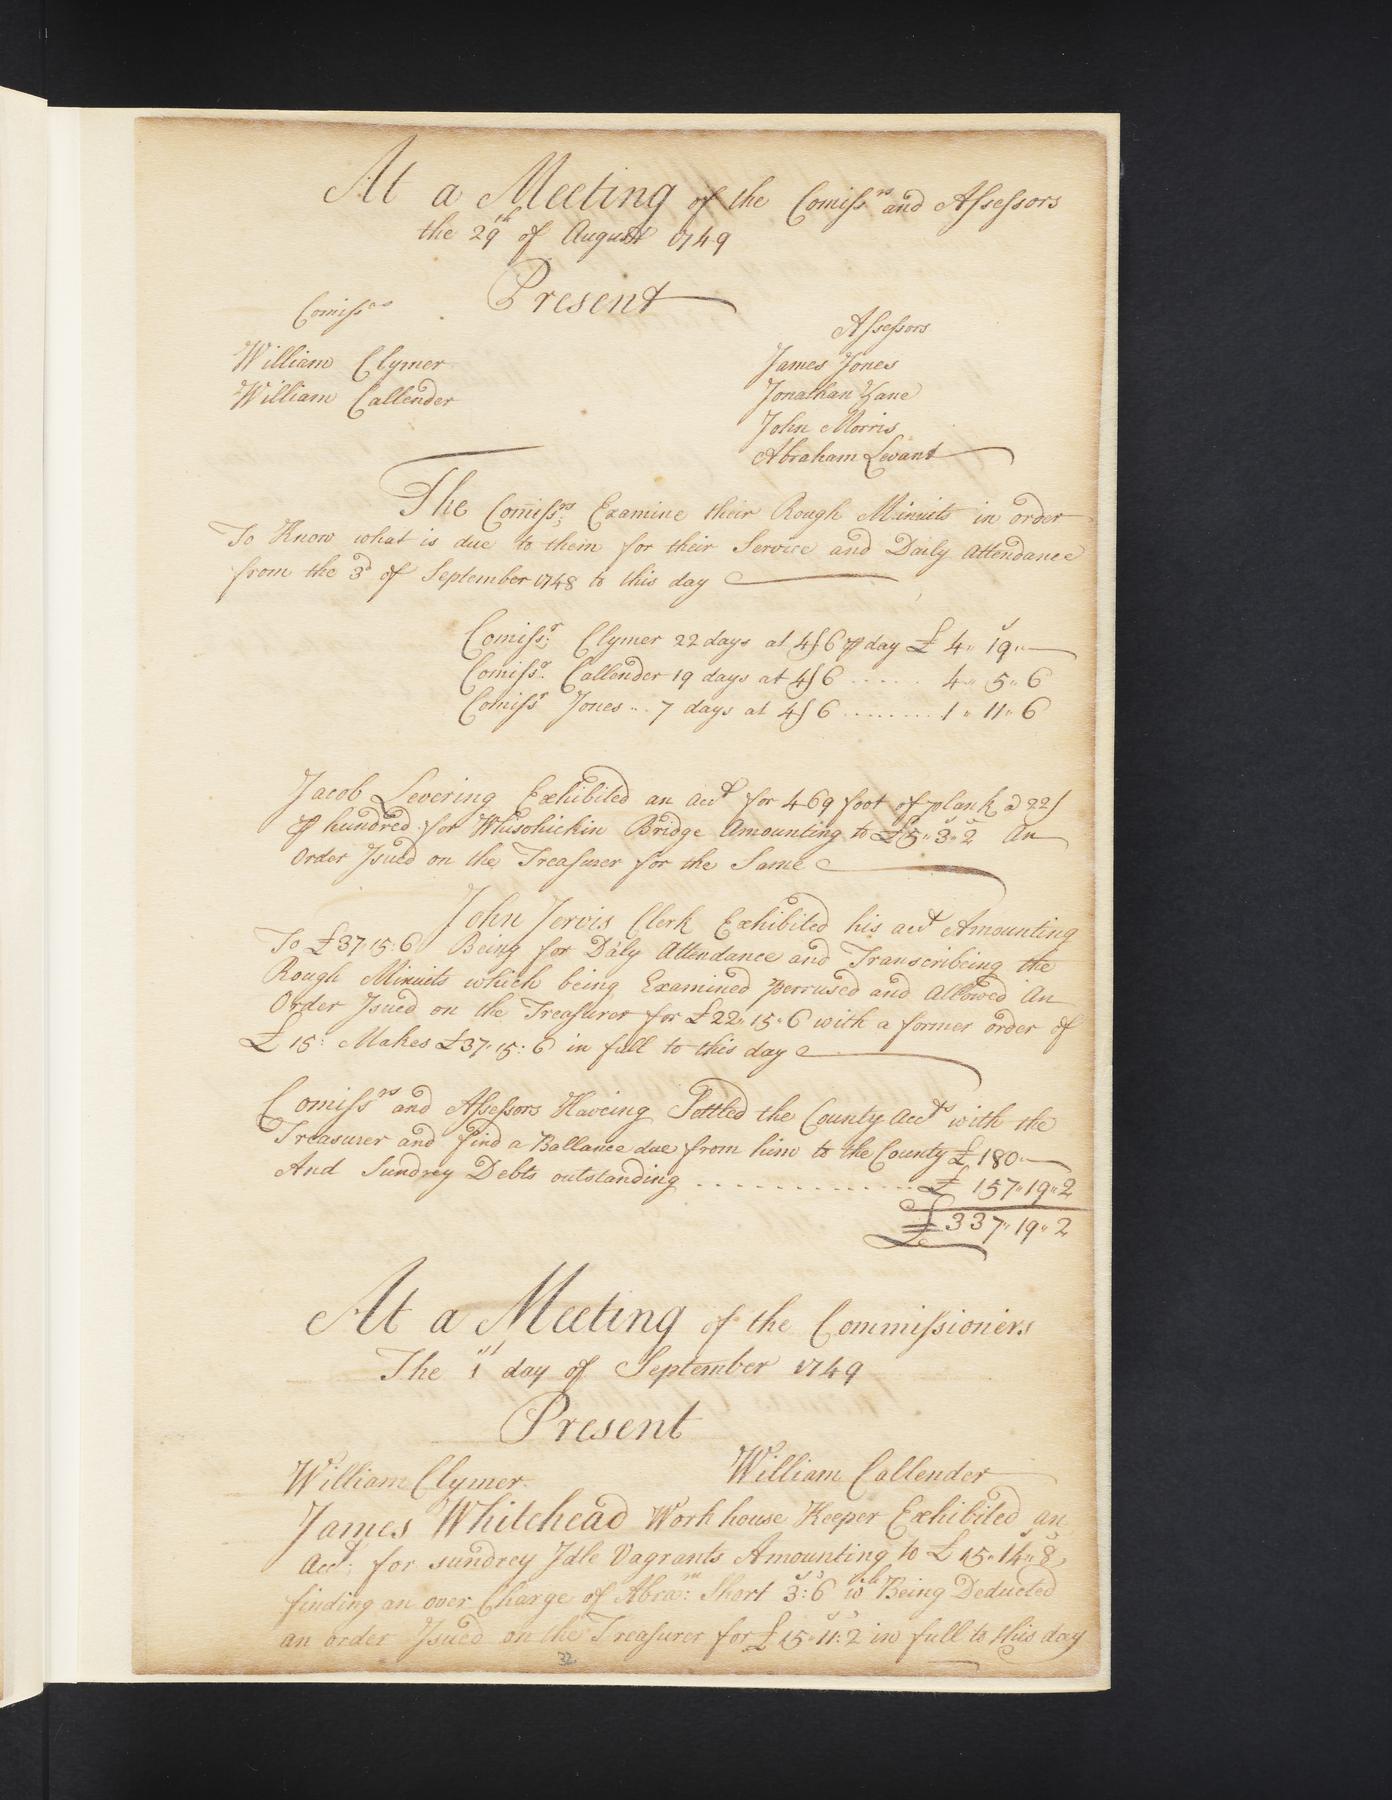 At a Meeting of the Comissrs and Assessors
the 29th of August 1749
Present
Comissrs
William Clymer
William Callender
Assessors
James Jones
Jonathan Zane
John Morris
Abraham Levant
The Comissrs: Examine their Rough Minuits in order
To Know what is due to them for their Service and Daily Attendance
from the 3d of September 1748 to this day
Comissr: Clymer 22 days at 4/6 ⅌ day £ 4 " 19 "
Comissr: Callender 19 days at 4/6 ..... 4 " 5 " 6
Comissr Jones .. 7 days at 4/6 ........ 1 " 11 " 6
Jacob Levering Exhibited an acct for 469 foot of plank @ 22/
⅌ hundred for Whisohickin Bridge Amounting to £5 " 3 " 2 An
Order Isued on the Treasurer for the Same
John Jervis Clerk Exhibited his acct Amounting
To £37 " 15 : 6 Being for Daly Attendance and Transcribeing the
Rough Minuits which being Examined Perrused and Allowed An
Order Isued on the Treasurer for £22 " 15 " 6 with a former order of
£ 15 : Makes £37 " 15 : 6 in full to this day
Comissrs and Assessors Haveing Settled the County accts with the
Treasurer and find a Ballance due from him to the County £ 180 "
And Sundrey Debts outstanding .............. £ 157 " 19 " 2
£ 337 " 19 " 2
At a Meeting of the Commissioners
The 1st day of September 1749
Present
William Clymer William Callender
James Whitehead Work house Keeper Exhibited an
acct: for sundrey Idle Vagrants Amounting to £ 15 " 14 " 8
finding an over Charge of Abram: Short 3 : 6 wch Being Deducted
an order Isued on the Treasurer for £ 15 " 11 : 2 in full to this day
32